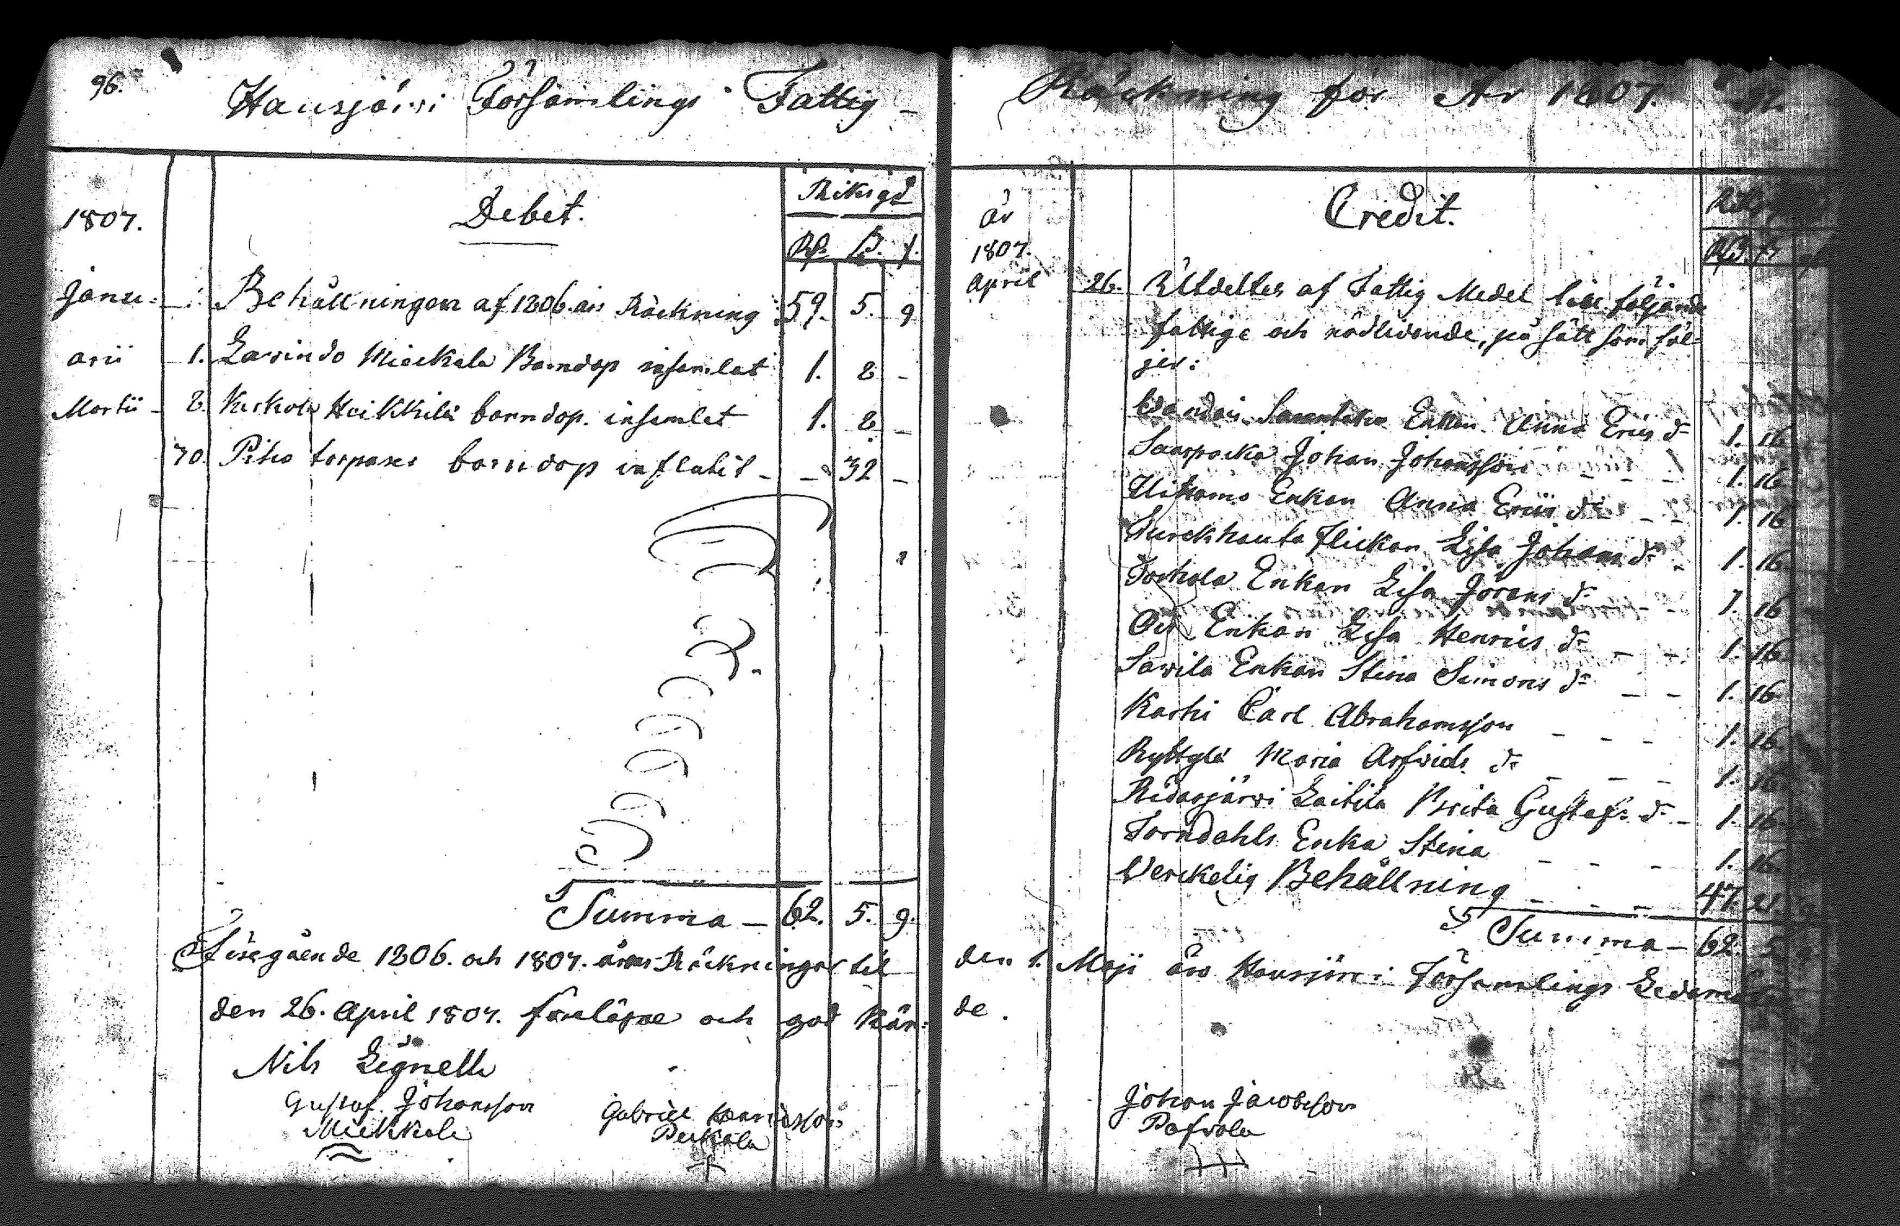 96.
Hausjärvi Församlings Fattig-
Riksgd
1807.
Debet.
Rdr. ß. r.
Janu-
Behållningen af 1806. års Räckning 59. 5. 9
arii 1. Lavindo Mieckala Barndop insamlat 1. 8 -
Martii - 8. Heikkilä barndop. insamlat 1. 8. -
30. torpares barndop influtit - - 32 -
Summa - 62. 5. 9.
Föregående 1806. och 1807. års Räckningar til
den 26. April 1807. föreläsne och god kän-
Nils Lignell
Gustaf Johansson
Mieckala
Gabriel Henricsson
Perkola
Räckning för År 1807. 97.
år
1807.
Credit.
April 26. Utdeltes af Fattig Medel till följande
fattige och nödlidende, på sätt som föl-
jer:
Enkan Anna Eriis dr 1. 16
Johan Johansson - - - 1. 16
Enkan Anna Eriis dr - - 1. 16
flickan Lisa Johans dr - 1. 16
Enkan Lisa Jörans dr - - 1. 16
Ois Enkan Lisa Henriis dr - - 1. 16
Savila Enkan Stina Simons dr - - 1. 16
Karhi Carl Abrahamsson - - - 1. 16
Ryttylä Maria Arfvids dr - - - 1. 16
Ridasjärvi Laitila Brita Gustafs dr - 1. 16
Torndahls Enka Stina - - - 1. 16
Verckelig Behållning - - - 47. 21. 9
Summa - 62. 5. 9
den 1. Maji års Hausjärvi Församlings
de.
Johan Jacobsson
Pafvola